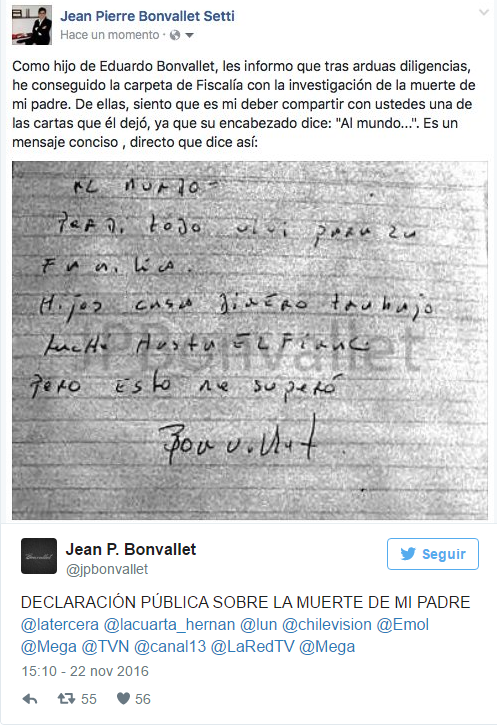 Jean Pierre Bonvallet Setti
Hace un momento ·
Como hijo de Eduardo Bonvallet, les informo que tras arduas diligencias,
he conseguido la carpeta de Fiscalía con la investigación de la muerte de
mi padre. De ellas, siento que es mi deber compartir con ustedes una de
las cartas que él dejó, ya que su encabezado dice: "Al mundo...". Es un
mensaje conciso , directo que dice así:
AL MUNDO-
PERDI todo vivi para su
Familia.
Hijos casa DINERO trabajo
Luche Hasta EL FINAL
Pero Esto me superó
Bonvallet
JPBonvallet
Bonvallet
Jean P. Bonvallet
@jpbonvallet
Seguir
DECLARACIÓN PÚBLICA SOBRE LA MUERTE DE MI PADRE
@latercera @lacuarta_hernan @lun @chilevision @Emol
@Mega @TVN @canal13 @LaRedTV @Mega
15:10 - 22 nov 2016
55 56